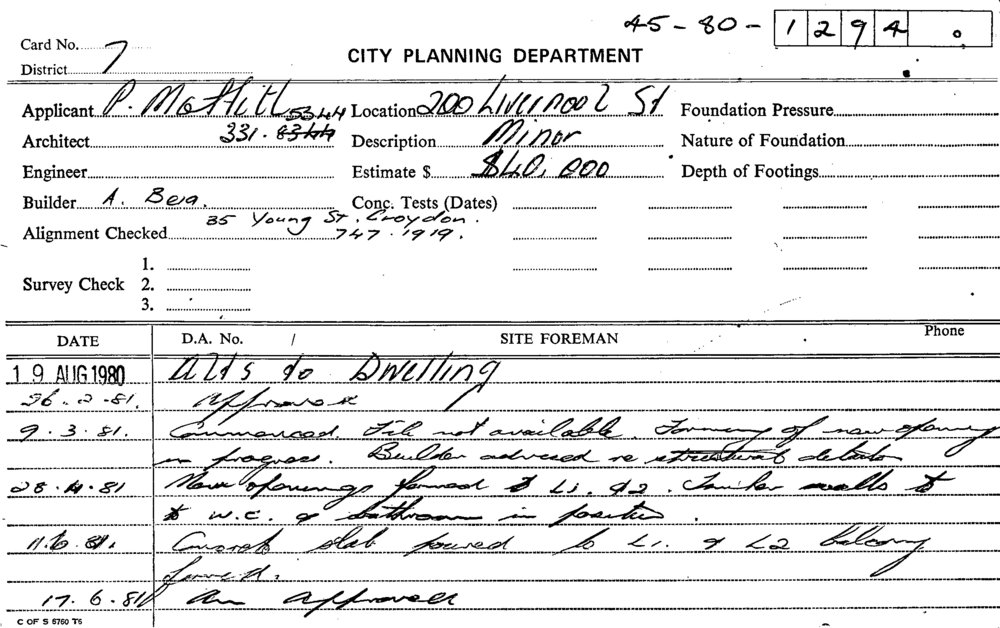 45-80-1294.
Card No. 7
District
CITY PLANNING DEPARTMENT
Applicant P. Moffitt 5344 Location 200 Liverpool St Foundation Pressure
Architect 331. 8344 Description Minor Nature of Foundation
Engineer Estimate $ $40,000 Depth of Footings
Builder A. Conc. Tests (Dates)
35 Young St. Croydon.
Alignment Checked 747.1919.
1.
Survey Check 2.
3.
DATE D.A. No. / SITE FOREMAN Phone
19 AUG 1980 Alts to Dwelling
26.2.81. Approved
9.3.81. Commenced. File not available. Forming of new opening
in progress. Builder advised re structural details
28.4.81 New openings formed to L1. & 2. Timber walls to
to W.C. & bathroom in position.
11.6.81. Concrete slab poured to L1. & L2 balcony
formed.
17.6.81 approved
C OF S 6760 T6